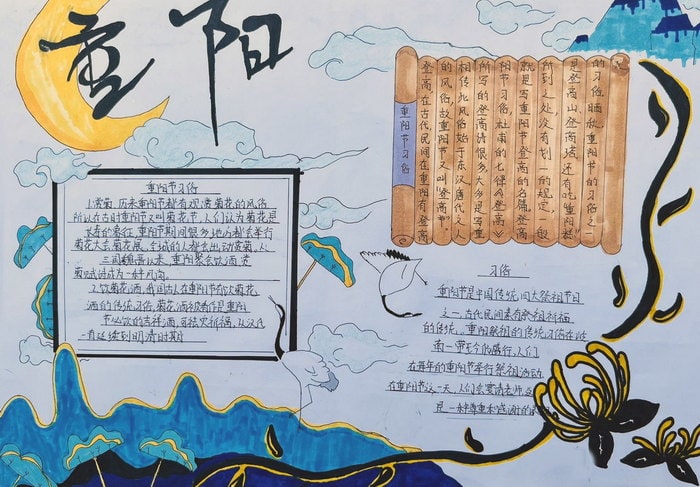 重阳
重阳节习俗
1.赏菊,历来重阳节都有观赏菊花的风俗
所以在古时重阳节又叫菊花节,人们认为菊花是
长寿的象征,重阳节期间很多地方都会举行
菊花大会菊花展,全城的人都去出动赏菊,从
三国魏晋以来,重阳聚会饮酒赏
菊赋诗成为一种风尚。
2.饮菊花酒,我国古人在重阳节有饮菊花
酒的传统习俗,菊花酒被看作是重阳
节必饮的吉祥酒,可祛灾祈福,从汉代
一直延续到明清时期
重阳节习俗
登高,在古代民间在重阳有登高
的风俗,故重阳节又叫“登高节”。
相传此风俗始于东汉,唐代文人
所写的登高诗很多,大多是写重
阳节习俗,杜甫的七律《登高》
就是写重阳登高的名篇,登高
所到之处,没有划一的规定,一般
是登高山,登高塔,还有吃重阳糕
的习俗,晒秋,重阳节的习俗之一。
习俗
重阳节是中国传统四大祭祖节日
之一,古代民间素有祭祖祈福
的传统,重阳祭祖的传统习俗在岭
南一带至今仍盛行,人们
在每年的重阳节举行祭祖活动
在重阳节这一天,人们会宴请老师
是一种尊重和感谢的